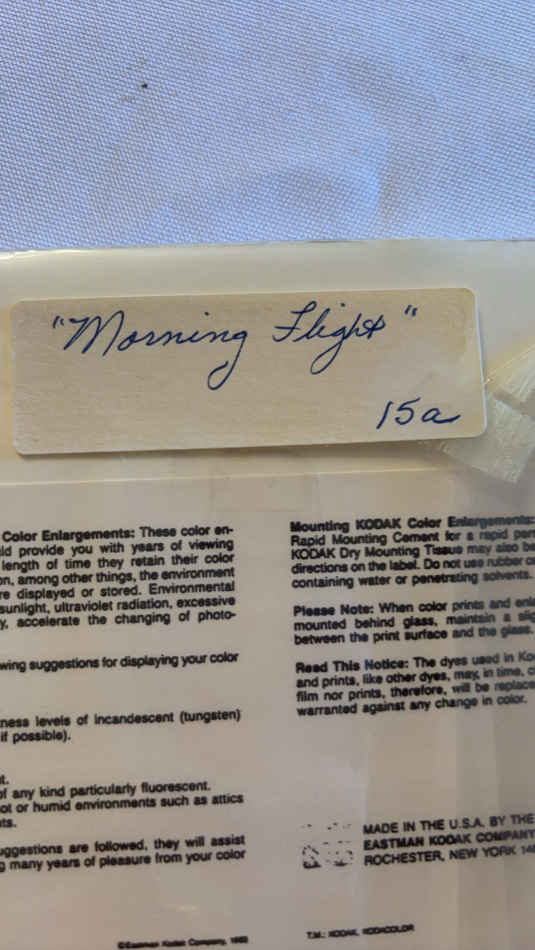 "Morning Flight"
15a
Color Enlargements: These color en-
ld provide you with years of viewing
length of time they retain their color
on, among other things, the environment
re displayed or stored. Environmental
sunlight, ultraviolet radiation, excessive
y, accelerate the changing of photo-
wing suggestions for displaying your color
ness levels of incandescent (tungsten)
if possible).
t.
of any kind particularly fluorescent.
ot or humid environments such as attics
ts.
uggestions are followed, they will assist
g many years of pleasure from your color
©Eastman Kodak Company,
Mounting KODAK Color Enlargements:
Rapid Mounting Cement for a rapid per
KODAK Dry Mounting Tissue may also be
directions on the label. Do not use rubber c
containing water or penetrating solvents.
Please Note: When color prints and enl
mounted behind glass, maintain a slig
between the print surface and the glass.
Read This Notice: The dyes used in Ko
and prints, like other dyes, may, in time, c
film nor prints, therefore, will be replace
warranted against any change in color.
MADE IN THE U.S.A. BY THE
EASTMAN KODAK COMPANY
ROCHESTER, NEW YORK 14
T.M.: KODAK, KODACOLOR